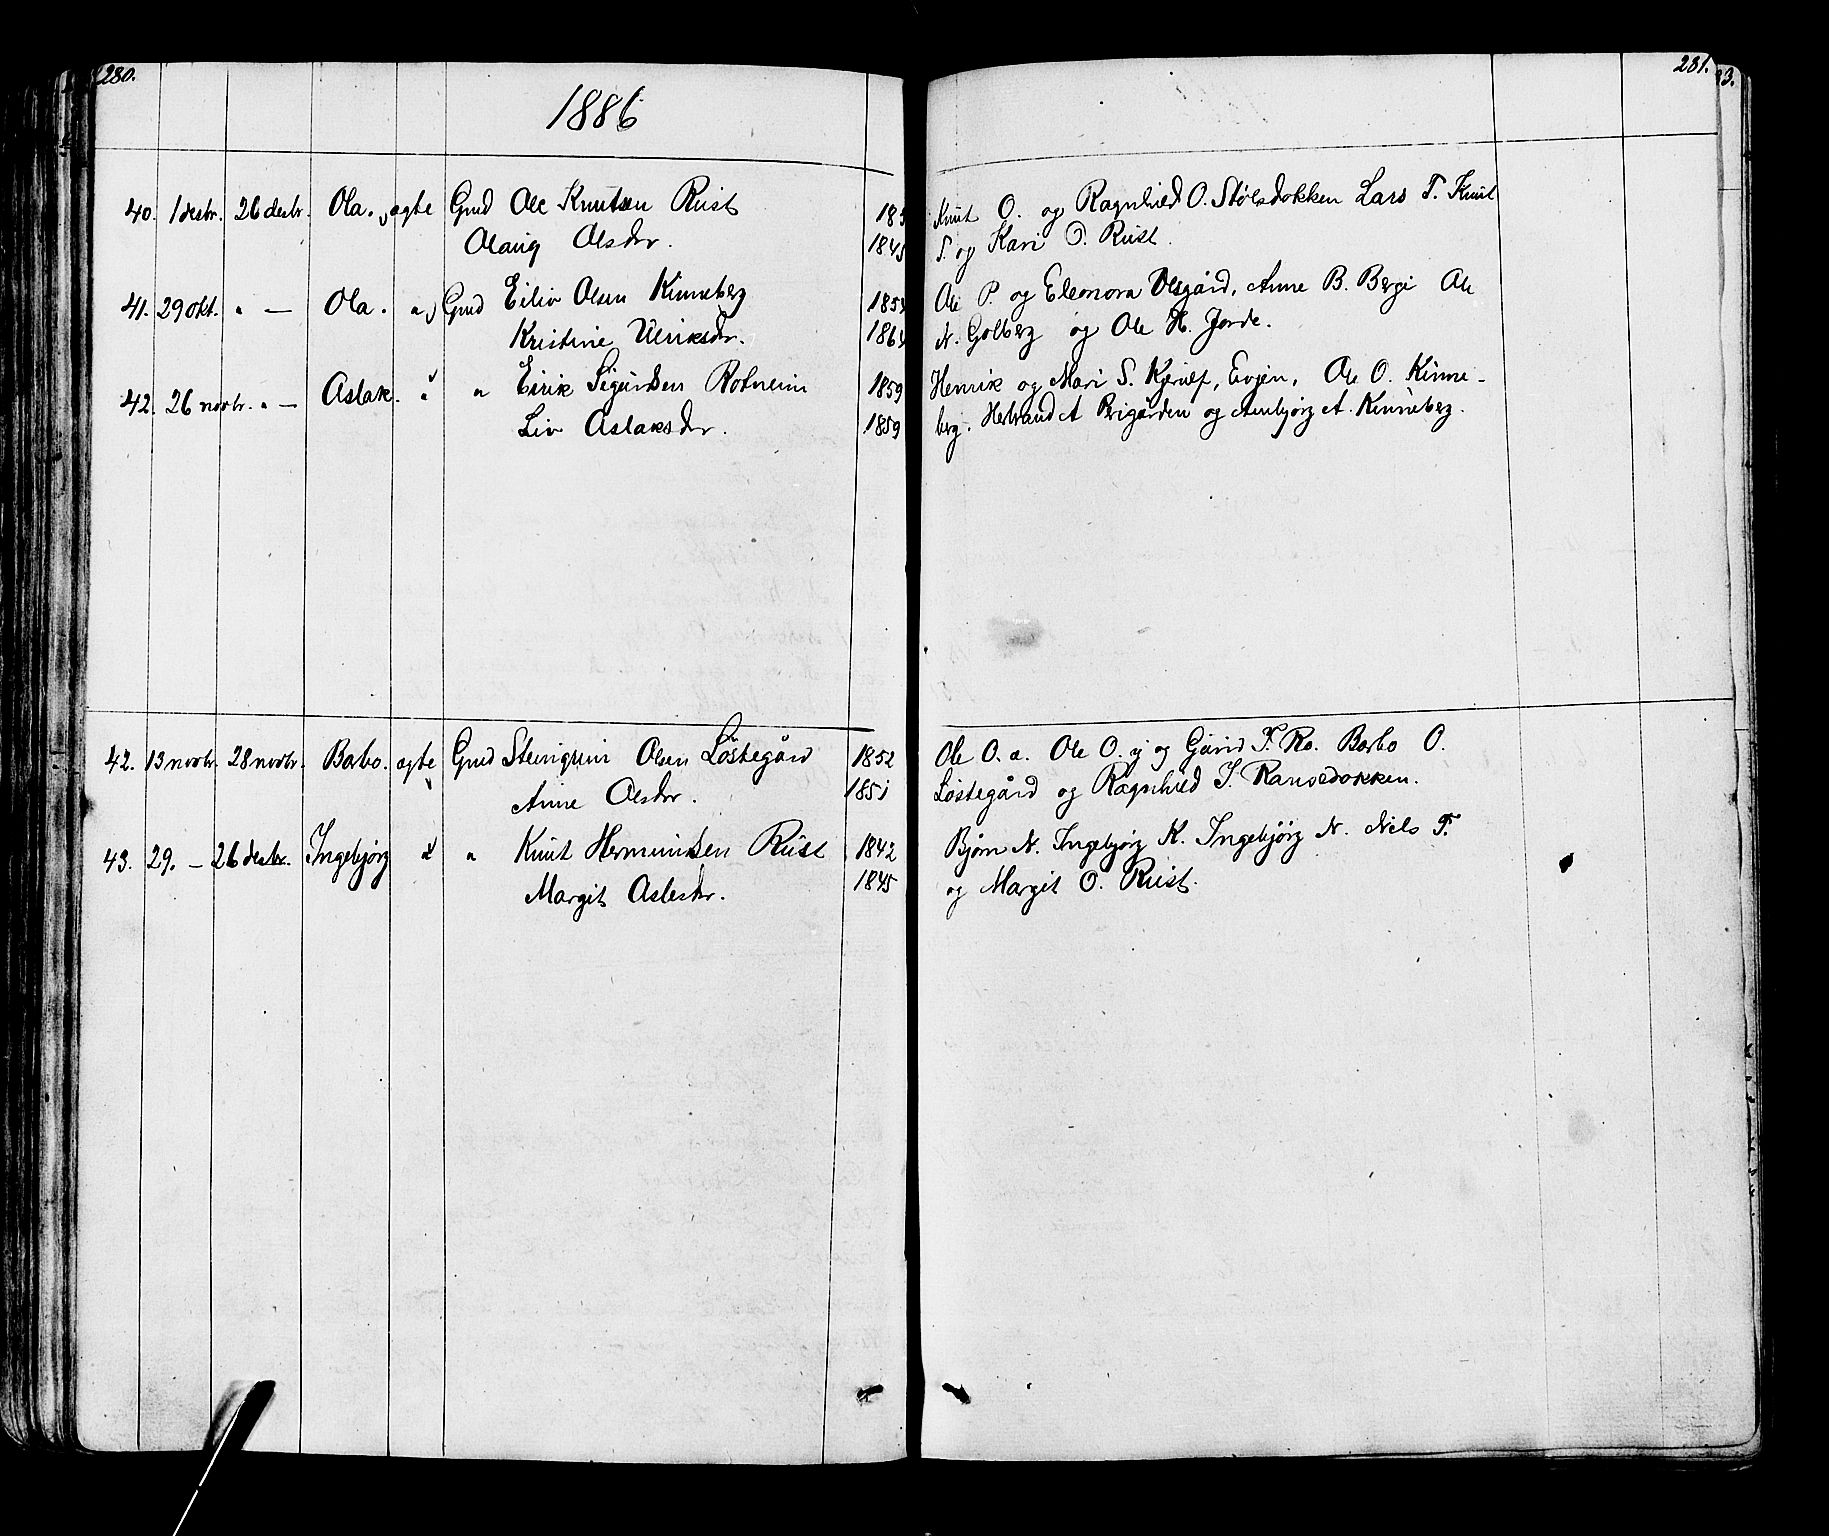 280.
1886
40. 1 desbr. 26 desbr. Ola. ægte Gmd Ole Knutsen Rust 185
Olaug Olsdr. 1845
41. 29 okt. " — Ola. " Gmd Eiliv Olsen Kinneberg 1854
Kristine Ulriksdr. 1864
42. 26 novbr. " — Aslak. " " Eirik Sigurdsen Rotneim 1859
Liv Aslaksdr. 1859
42. 13 novbr. 28 novbr. Barbo. ægte Gmd Steingrim Olsen Løstegård 1852
Anne Olsdr. 1851
43. 29. — 26 desbr. Ingebjørg " " Knut Hermundsen Rust 1842
Margit Aslesdr. 1845
281.
3.
Knut O. og Ragnhild O. Stølsdokken Lars T. Knut
T. og Kari O. Rust.
Ole P. og Eleonora Olsgård, Anne B. Berge Ole
N. Golberg og Ole H. Jorde.
Henrik og Mari S. Kjerulf, Evjen, Ole O. Kinne-
berg. Herbrand A Brigården og Anbjørg A. Kinneberg.
Ole O. a. Ole O. y og Guri T. Ro. Barbo O.
Løstegård og Ragnhild T. Ransedokken.
Bjørn N. Ingebjørg K. Ingebjørg N. Nils T.
og Margit O. Rust.